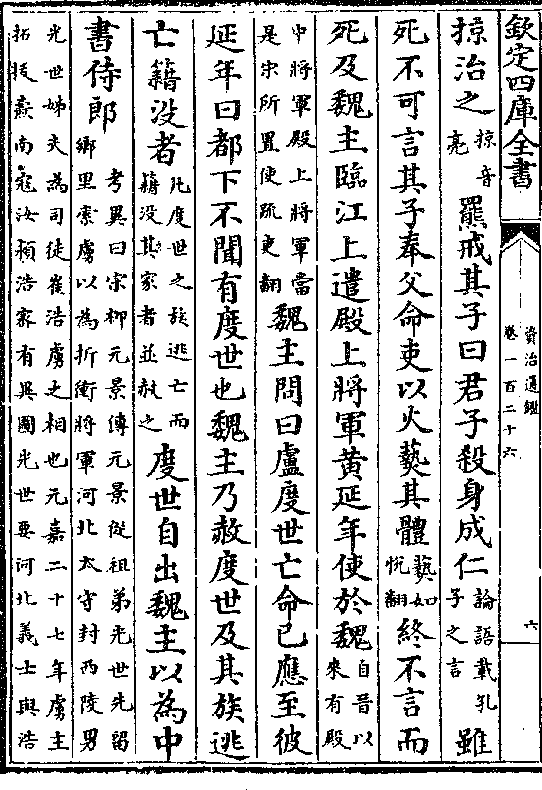 欽定四庫全書
資治通鑑
卷一百二十六
六
掠治之掠音亮羆戒其子曰君子殺身成仁論語載孔子之言雖
死不可言其子奉父命吏以火爇其體爇如悅翻終不言而
死及魏主臨江上遣殿上將軍黄延年使於魏自昔以來有殿
中將軍殿上將軍當是宋所置使疏吏翻魏主問曰盧度世亡命已應至彼
延年曰都下不聞有度世也魏主乃赦度世及其族逃
亡籍没者凡度世之族逃亡而籍没其家者並赦之度世自出魏主以為中
書侍郎考異曰宋柳元景傳元景從祖弟光世先留鄉里索虜以為折衝將軍河北太守封西陵男
光世姊夫為司徒崔浩虜之相也元嘉二十七年虜主拓跋燾南寇汝潁浩宻有異圖光世要河北義士與浩